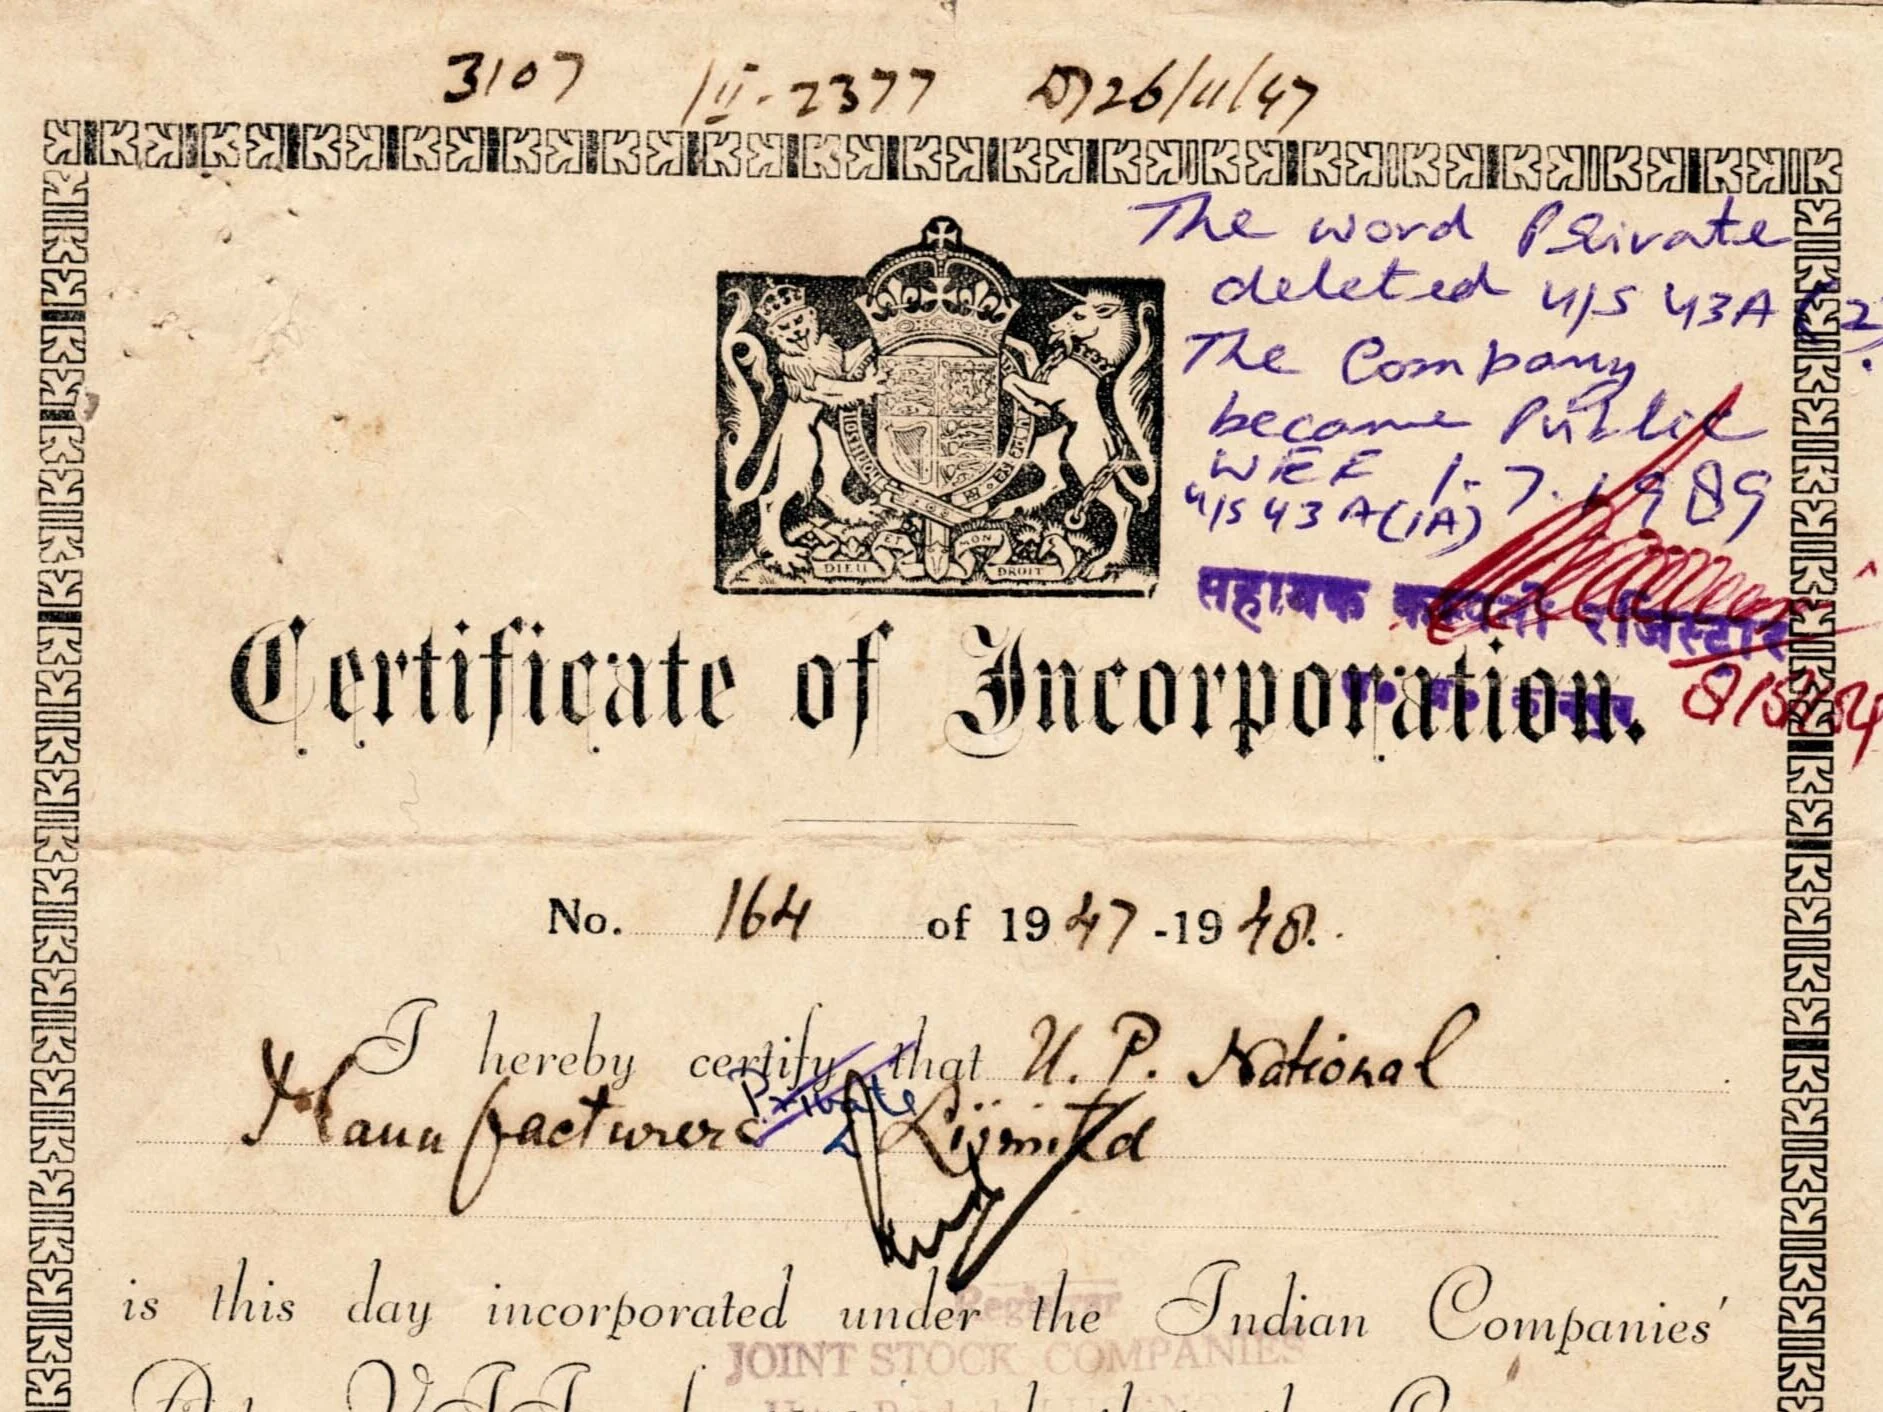 3107 /II-2377 D/26/11/47
The word Private
deleted u/s 43A (2).
The Company
became Public
WEF 1.7.1989
u/s 43A(1A)
सहायक कम्पनी रजिस्ट्रार
DIEU ET MON DROIT
Certificate of Incorporation.
No. 164 of 1947-1948.
I hereby certify that U. P. National
Private
Manufacturers Limited
is this day incorporated under the Indian Companies'
Registrar
JOINT STOCK COMPANIES